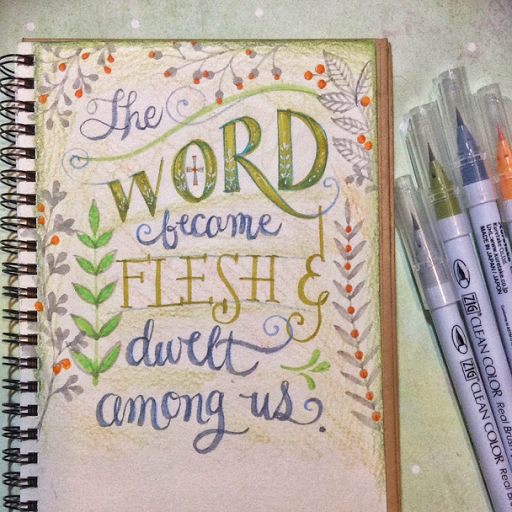 The
WORD
became
FLESH &
dwelt
among us.
ZIG CLEAN COLOR Real Brush
ZIG CLEAN COLOR Real Brush
MADE IN JAPAN